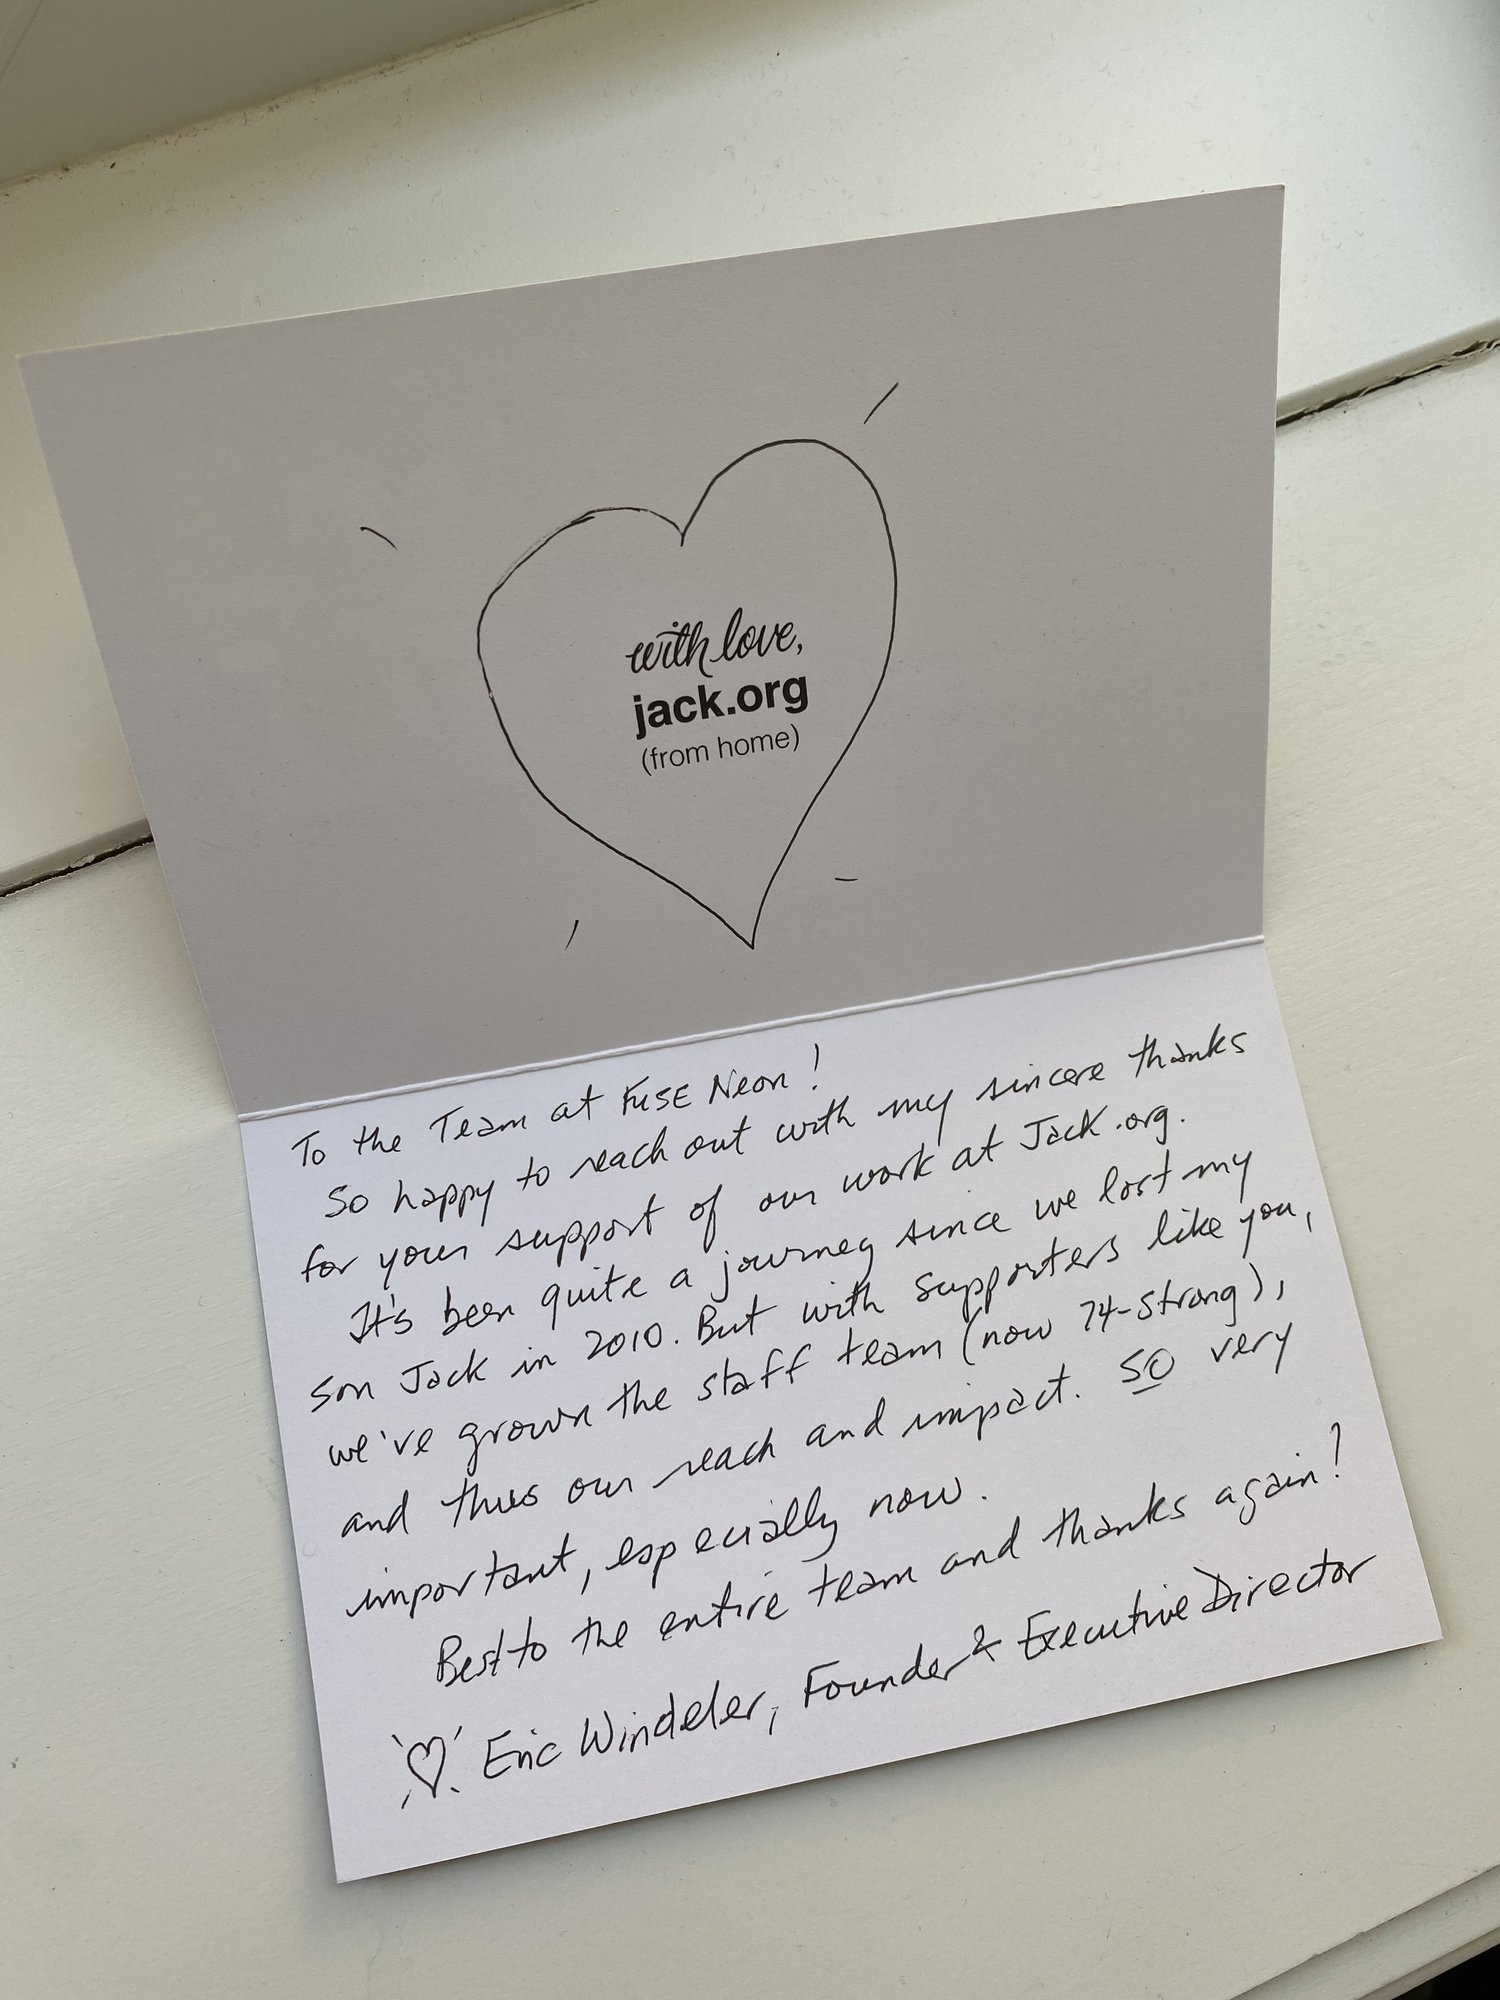 with love,
jack.org
(from home)
To the Team at FUSE Neon!
So happy to reach out with my sincere thanks
for your support of our work at Jack.org.
It's been quite a journey since we lost my
son Jack in 2010. But with supporters like you,
we've grown the staff team (now 74-strong),
and thus our reach and impact. SO very
important, especially now.
Best to the entire team and thanks again!
Eric Windeler, Founder & Executive Director